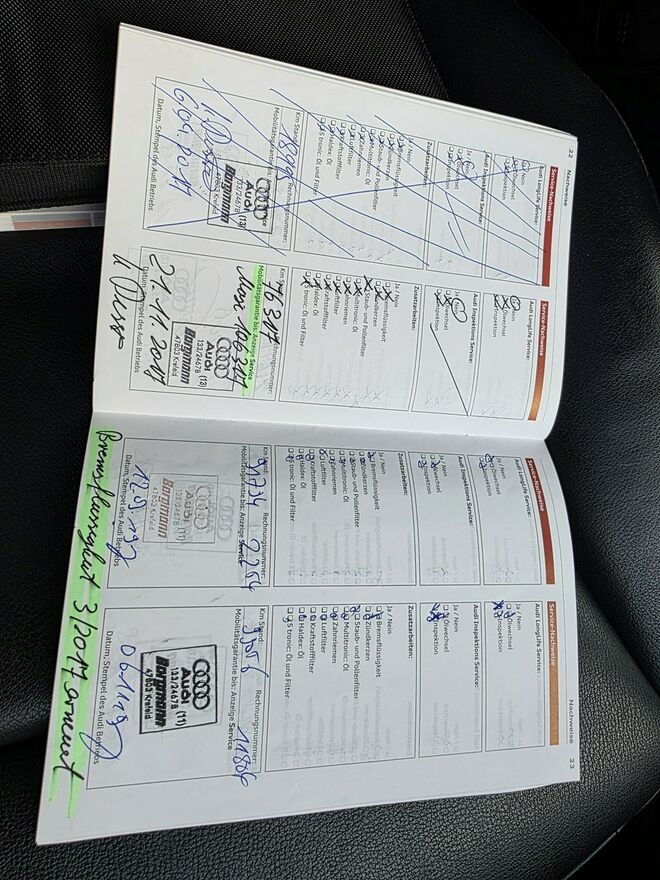 22 Nachweise
Service-Nachweise
Audi LongLife Service:
Ja / Nein
Ölwechsel
Inspektion
Audi Inspektions Service:
Ja / Nein
Ölwechsel
Inspektion
Zusatzarbeiten:
Ja / Nein
Bremsflüssigkeit
Zündkerzen
Staub- und Pollenfilter
Multitronic: Öl
Zahnriemen
Luftfilter
Kraftstofffilter
Haldex: Öl
S tronic: Öl und Filter
Km Stand: Rechnungsnummer:
Mobilitätsgarantie bis: Anzeige Service
Audi
133/24678 (13)
Borgmann
47803 Krefeld
Datum, Stempel des Audi Betriebs
Service-Nachweise
Audi LongLife Service:
Ja / Nein
Ölwechsel
Inspektion
Audi Inspektions Service:
Ja / Nein
Ölwechsel
Inspektion
Zusatzarbeiten:
Ja / Nein
Bremsflüssigkeit
Zündkerzen
Staub- und Pollenfilter
Multitronic: Öl
Zahnriemen
Luftfilter
Kraftstofffilter
Haldex: Öl
S tronic: Öl und Filter
Km Stand: Rechnungsnummer:
76307
Mobilitätsgarantie bis: Anzeige Service
Max. 106307
Audi
133/24678 (13)
Borgmann
47803 Krefeld
21.11.2017
Datum, Stempel des Audi Betriebs
Nachweise 23
Service-Nachweise
Audi LongLife Service:
Ja / Nein
Ölwechsel
Inspektion
Audi Inspektions Service:
Ja / Nein
Ölwechsel
Inspektion
Zusatzarbeiten:
Ja / Nein
Bremsflüssigkeit
Zündkerzen
Staub- und Pollenfilter
Multitronic: Öl
Zahnriemen
Luftfilter
Kraftstofffilter
Haldex: Öl
S tronic: Öl und Filter
Km Stand: Rechnungsnummer:
Mobilitätsgarantie bis: Anzeige Service
Audi
133/24678 (11)
Borgmann
47803 Krefeld
Datum, Stempel des Audi Betriebs
Service-Nachweise
Audi LongLife Service:
Ja / Nein
Ölwechsel
Inspektion
Audi Inspektions Service:
Ja / Nein
Ölwechsel
Inspektion
Zusatzarbeiten:
Ja / Nein
Bremsflüssigkeit
Zündkerzen
Staub- und Pollenfilter
Multitronic: Öl
Zahnriemen
Luftfilter
Kraftstofffilter
Haldex: Öl
S tronic: Öl und Filter
Km Stand: Rechnungsnummer:
Mobilitätsgarantie bis: Anzeige Service
Audi
133/24678 (11)
Borgmann
47803 Krefeld
Datum, Stempel des Audi Betriebs
3/2017 erneuert